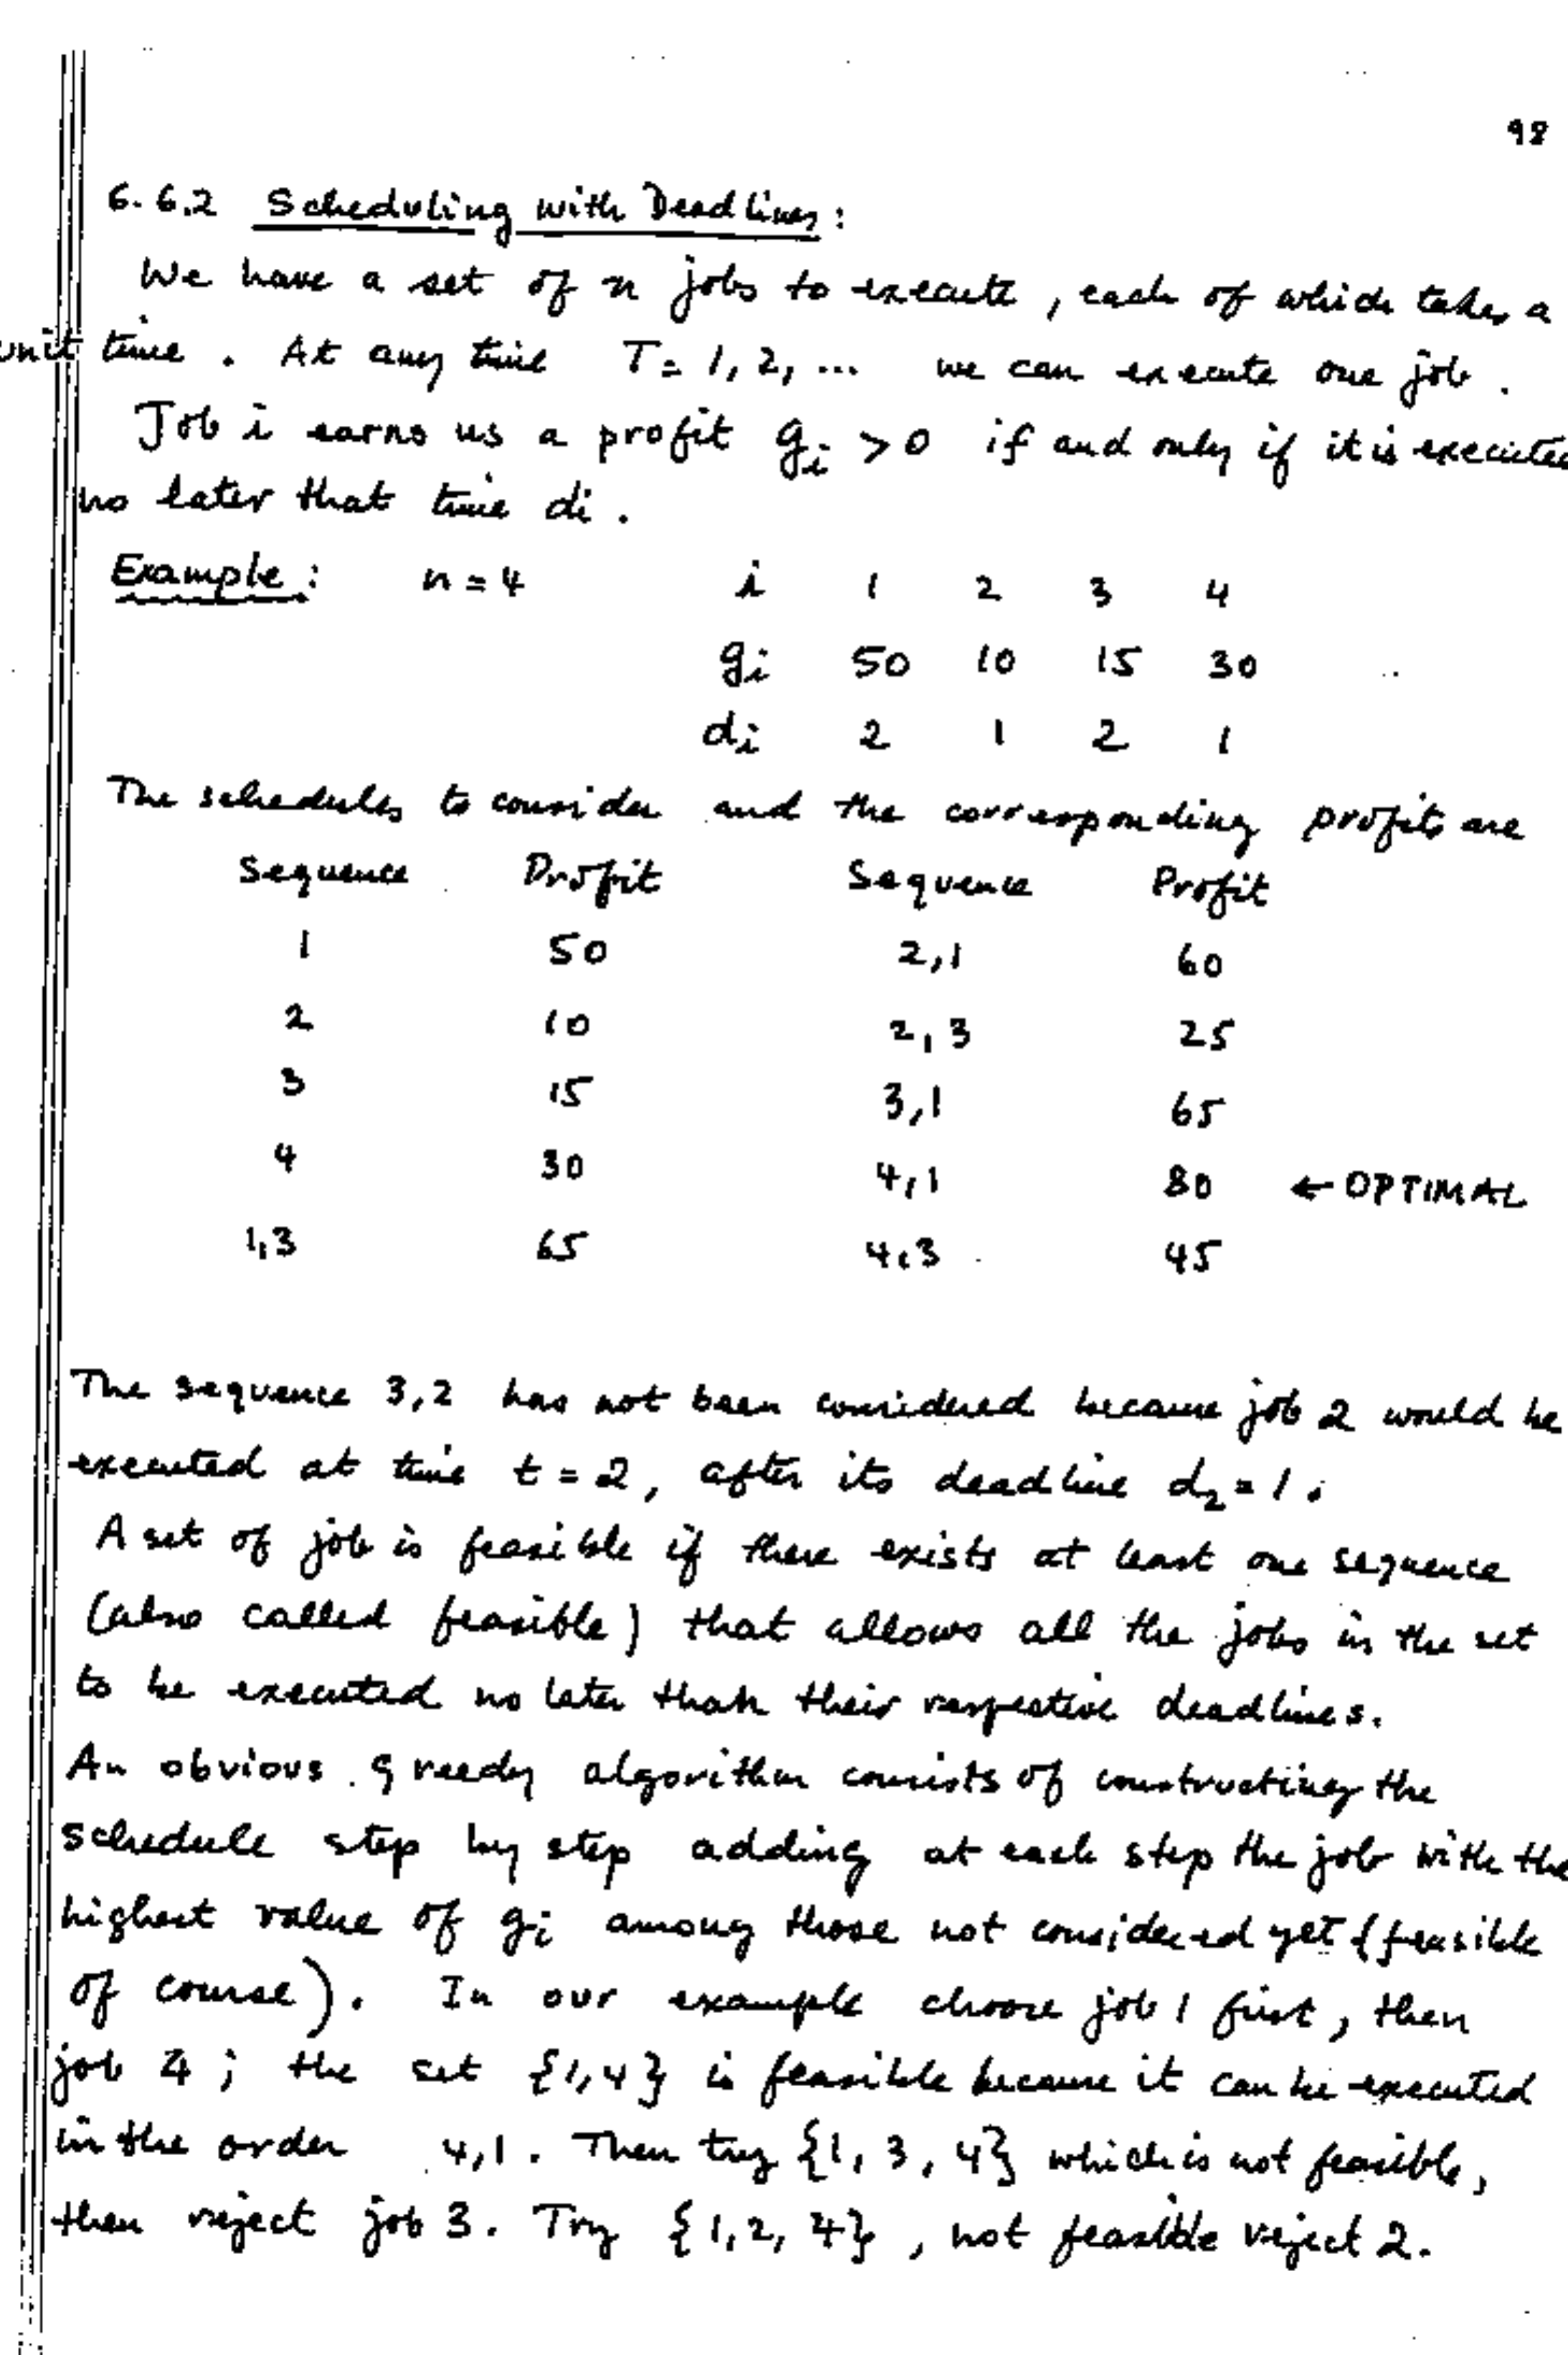 98
6.6.2 Scheduling with Deadlines :
We have a set of n jobs to execute, each of which takes a
unit time. At any time T = 1, 2, ... we can execute one job.
Job i earns us a profit gi > 0 if and only if it is executed
no later that time di.
Example : n = 4 i 1 2 3 4
gi 50 10 15 30
di 2 1 2 1
The schedules to consider and the corresponding profits are
Sequence Profit Sequence Profit
1 50 2,1 60
2 10 2,3 25
3 15 3,1 65
4 30 4,1 80 ← OPTIMAL
1,3 65 4,3 45
The sequence 3,2 has not been considered because job 2 would be
executed at time t = 2, after its deadline d2 = 1.
A set of job is feasible if there exists at least one sequence
(also called feasible) that allows all the jobs in the set
to be executed no later than their respective deadlines.
An obvious greedy algorithm consists of constructing the
schedule step by step adding at each step the job with the
highest value of gi among those not considered yet (feasible
of course). In our example choose job 1 first, then
job 4 ; the set {1,4} is feasible because it can be executed
in the order 4,1. Then try {1, 3, 4} which is not feasible,
then reject job 3. Try {1, 2, 4}, not feasible reject 2.